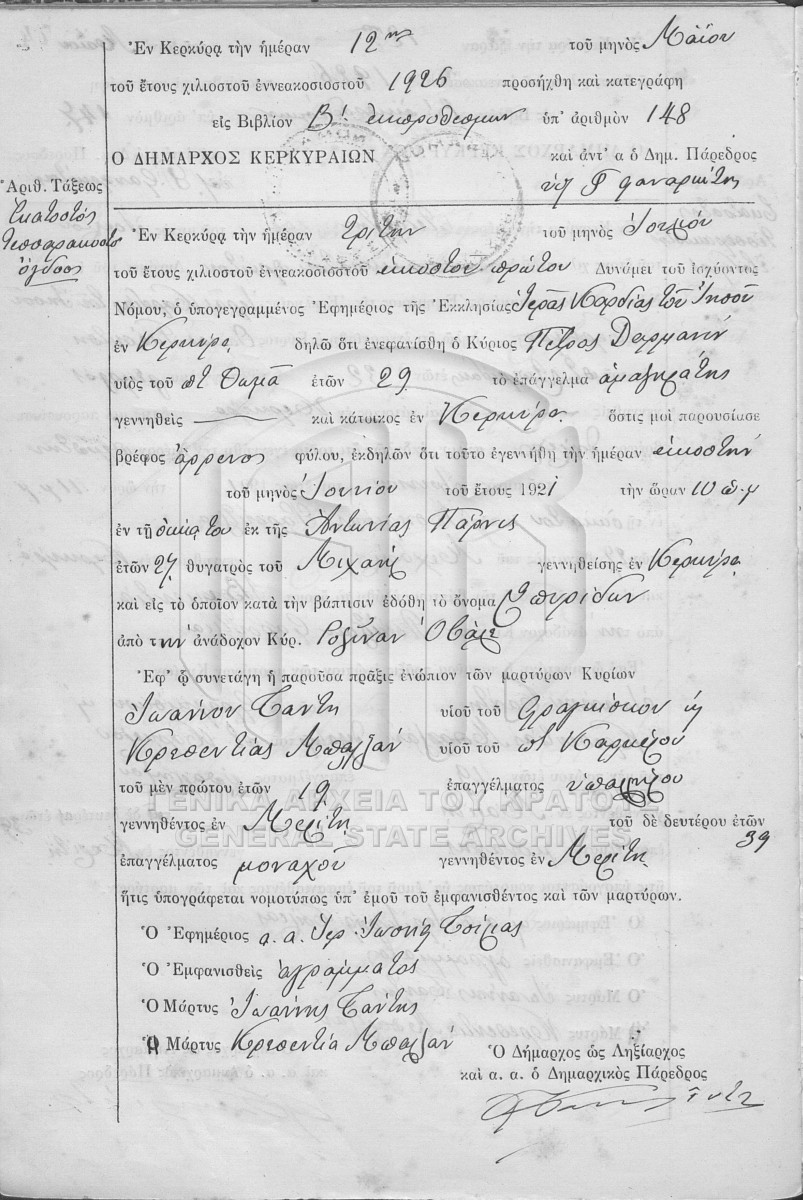 Ἐν Κερκύρᾳ τὴν ἡμέραν 12ης τοῦ μηνὸς Μαΐου
τοῦ ἔτους χιλιοστοῦ ἐννεακοσιοστοῦ 1926 προσήχθη καὶ κατεγράφη
εἰς Βιβλίον Β! ἐκπροθέσμων ὑπ' ἀριθμὸν 148
Ο ΔΗΜΑΡΧΟΣ ΚΕΡΚΥΡΑΙΩΝ καὶ ἀντ' α ὁ Δημ. Πάρεδρος
Ἀριθ. Τάξεως
Ἑκατοστός
τεσσαρακοστό
όγδοος
Ἐν Κερκύρᾳ τὴν ἡμέραν τρίτην τοῦ μηνὸς Ἰουλίου
τοῦ ἔτους χιλιοστοῦ ἐννεακοσιοστοῦ εἰκοστοῦ πρώτου Δυνάμει τοῦ ἰσχύοντος
Νόμου, ὁ ὑπογεγραμμένος Ἐφημέριος τῆς Ἐκκλησίας Ἱερᾶς Καρδίας τοῦ Ἰησοῦ
ἐν Κερκύρᾳ δηλῶ ὅτι ἐνεφανίσθη ὁ Κύριος Πέτρος Δαρμανίν
υἱὸς τοῦ ποτ Θωμᾶ ἐτῶν 29 τὸ ἐπάγγελμα ἁμαξηλάτης
γεννηθεὶς — καὶ κάτοικος ἐν Κερκύρᾳ ὅστις μοὶ παρουσίασε
βρέφος ἄρρενος φύλου, ἐκδηλῶν ὅτι τοῦτο ἐγεννήθη τὴν ἡμέραν εἰκοστήν
τοῦ μηνὸς Ἰουνίου τοῦ ἔτους 1921 τὴν ὥραν 10 π.μ
ἐν τῇ οἰκίᾳ του ἐκ τῆς Ἀντωνίας Πάρνις
ἐτῶν 27 θυγατρὸς τοῦ Μιχαήλ γεννηθείσης ἐν Κερκύρᾳ
καὶ εἰς τὸ ὁποῖον κατὰ τὴν βάπτισιν ἐδόθη τὸ ὄνομα Σπυρίδων
ἀπὸ την ἀνάδοχον Κύρ. Ροζίναν
Ἐφ' ᾧ συνετάγη ἡ παροῦσα πρᾶξις ἐνώπιον τῶν μαρτύρων Κυρίων
Ἰωάννου υἱοῦ τοῦ Φραγκίσκου
Κρεσεντίας Μπαλζάν υἱοῦ τοῦ ποτ Καρμέλου
τοῦ μὲν πρώτου ἐτῶν 19 ἐπαγγέλματος ὑπαλλήλου
γεννηθέντος ἐν Μελίτῃ τοῦ δὲ δευτέρου ἐτῶν 39
ἐπαγγέλματος μοναχοῦ γεννηθέντος ἐν Μελίτῃ
ἥτις ὑπογράφεται νομοτύπως ὑπ' ἐμοῦ τοῦ ἐμφανισθέντος καὶ τῶν μαρτύρων.
Ὁ Ἐφημέριος α. α. Ἱερ. Ἰωσήφ
Ὁ Ἐμφανισθεὶς ἀγράμματος
Ὁ Μάρτυς Ἰωάννης
Η Μάρτυς Κρεσεντία Μπαλζάν
Ὁ Δήμαρχος ὡς Ληξίαρχος
καὶ α. α. ὁ Δημαρχικὸς Πάρεδρος
ΓΕΝΙΚΑ ΑΡΧΕΙΑ ΤΟΥ ΚΡΑΤΟΥΣ
GENERAL STATE ARCHIVES